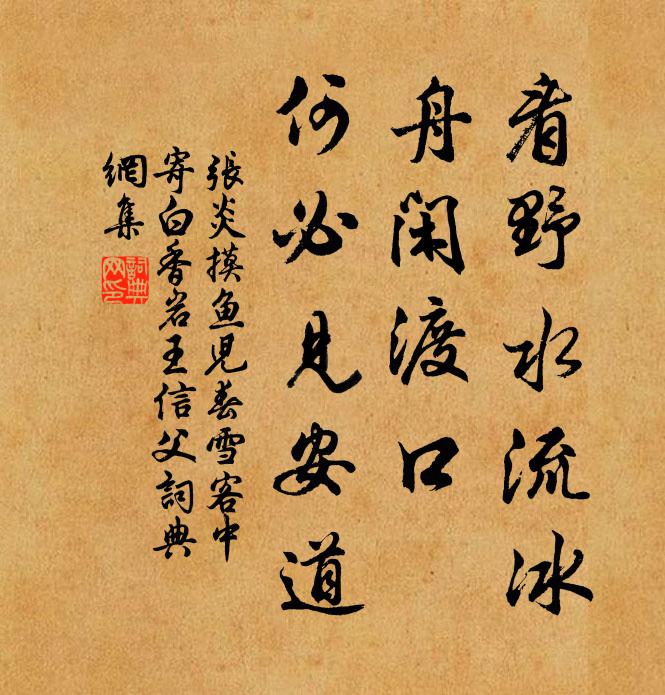 看野水流冰
舟閑渡口
何必見安道
張炎摸魚兒春雪客中
寄白香岩王信父詞典
網集
詞典網印